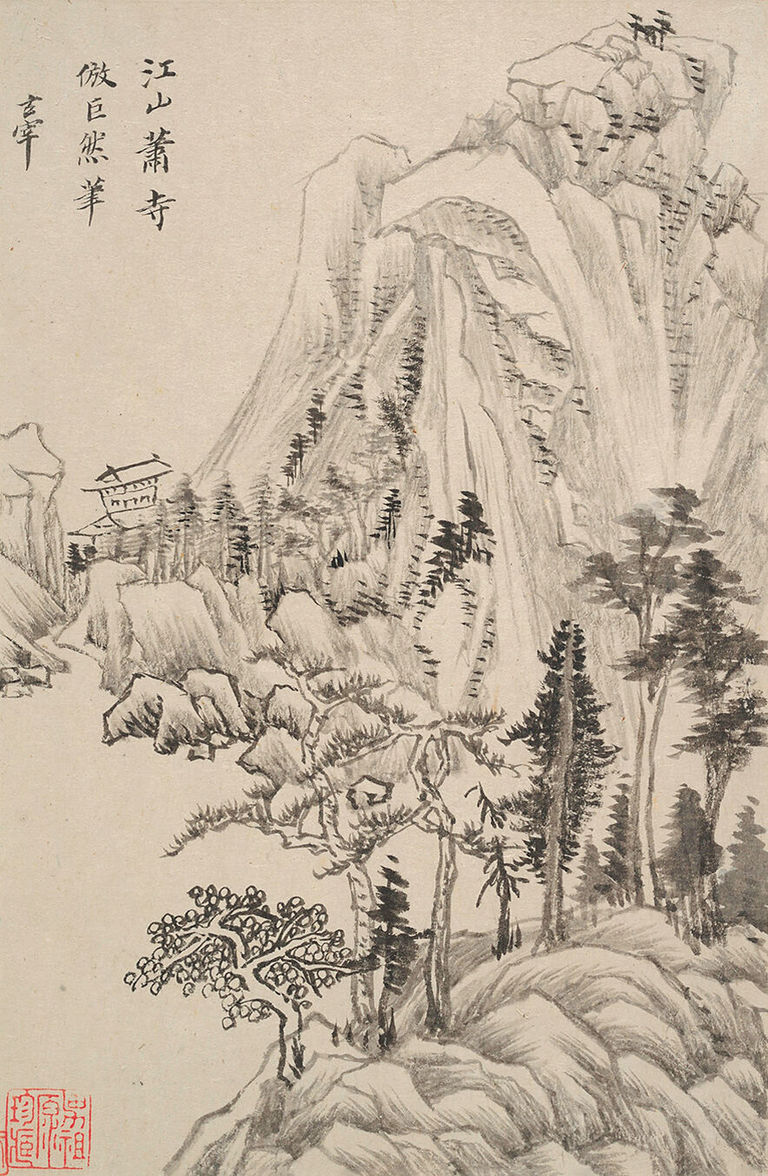 江山蕭寺
倣巨然筆
玄宰